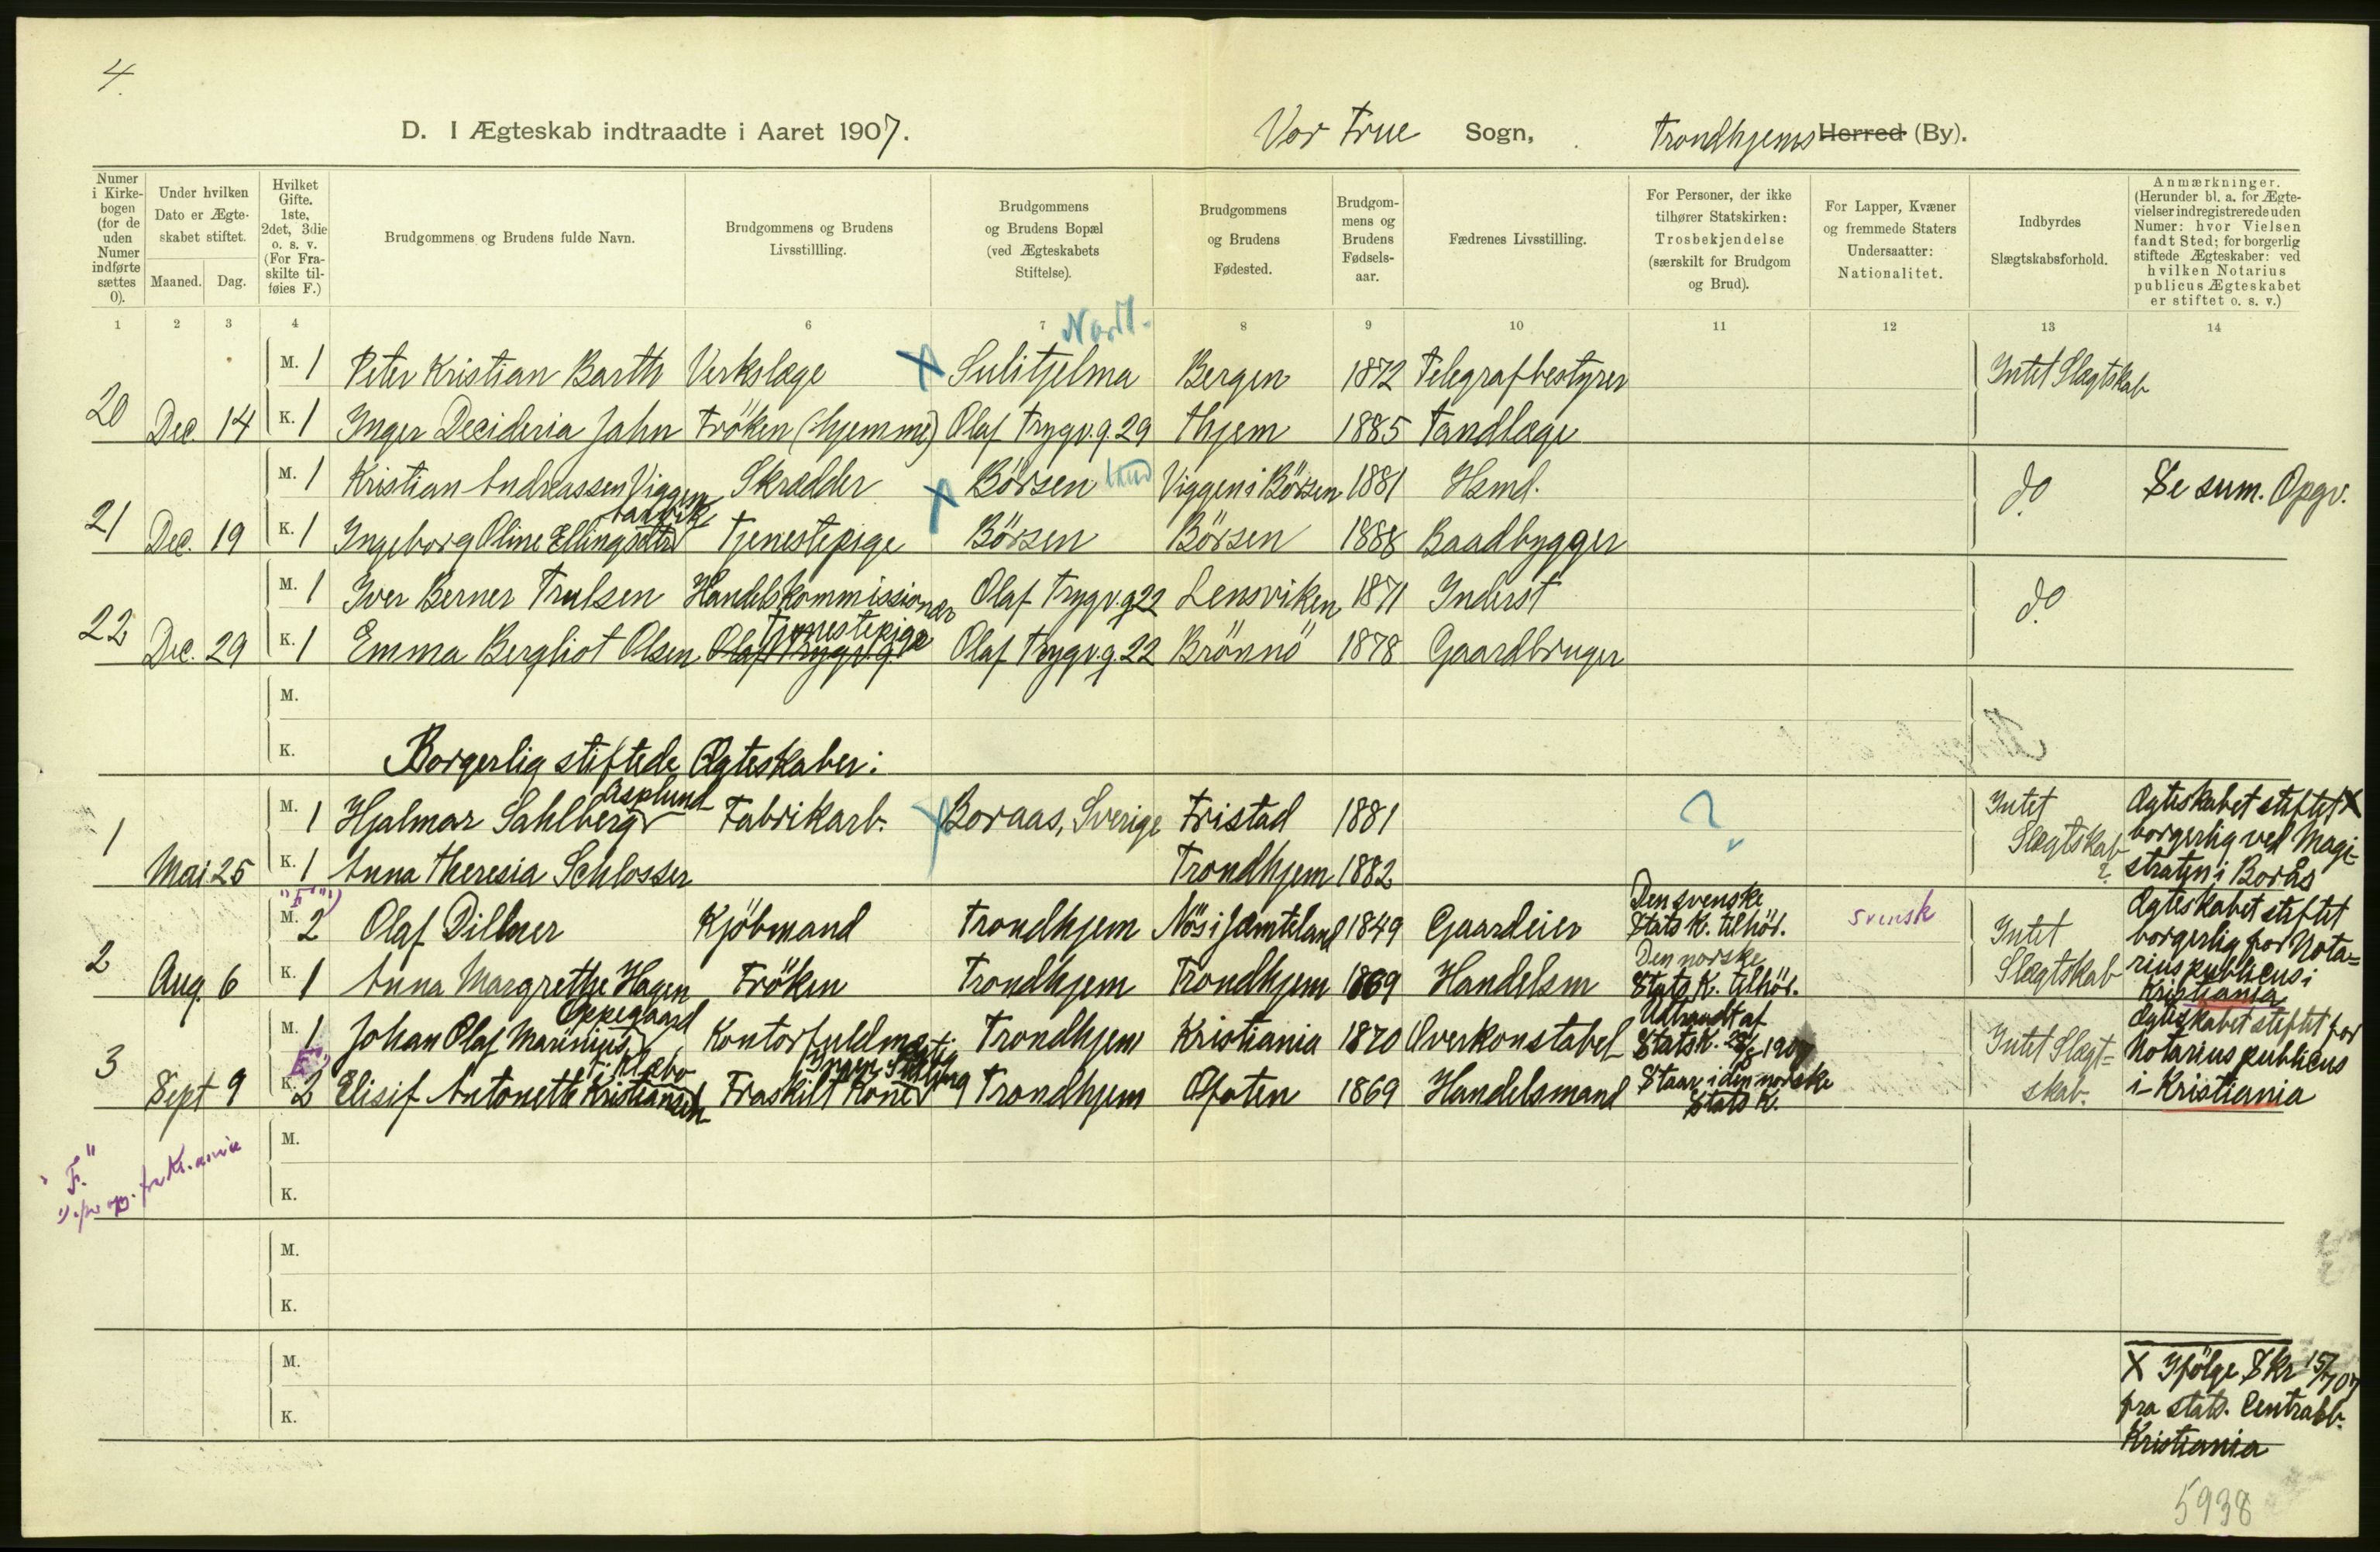 4.
D. I Ægteskab indtraadte i Aaret 1907.
Vor Frue Sogn, Trondhjems Herred (By).
Numer i Kirkebogen (for de uden Numer indførte sættes 0).
Under hvilken Dato er Ægteskabet stiftet.
Maaned. Dag.
Hvilket Gifte. 1ste, 2det, 3die o. s. v. (For Fraskilte tilføies F.)
Brudgommens og Brudens fulde Navn.
Brudgommens og Brudens Livsstillling.
Brudgommens og Brudens Bopæl (ved Ægteskabets Stiftelse).
Brudgommens og Brudens Fødested.
Brudgommens og Brudens Fødselsaar.
Fædrenes Livsstilling.
For Personer, der ikke tilhører Statskirken: Trosbekjendelse (særskilt for Brudgom og Brud).
For Lapper, Kvæner og fremmede Staters Undersaatter: Nationalitet.
Indbyrdes Slægtskabsforhold.
Anmærkninger. (Herunder bl. a. for Ægtevielser indregistrerede uden Numer: hvor Vielsen fandt Sted; for borgerlig stiftede Ægteskaber: ved hvilken Notarius publicus Ægteskabet er stiftet o. s. v.)
1 2 3 4 6 7 8 9 10 11 12 13 14
Nordl.
M. 1 Peter Kristian Barth Verkslæge X Sulitjelma Bergen 1872 Telegrafbestyrer Intet Slægtskab
20 Dec. 14 K. 1 Inger Decideria Jahn Fröken (hjemme) Olaf Trygv.g. 29 Thjem 1885 Tandlæge
M. 1 Kristian Andreassen Viggen Skrædder X Börsen Viggen i Börsen 1881 Hsmd. do. Se sum. Opgv.
21 Dec. 19 K. 1 Ingeborg Oline Ellingsdtr Tjenestepige Börsen Börsen 1888 Baadbygger
M. 1 Iver Berner Trulsen Handelskommissionær Olaf Trygv.g 22 Lensviken 1871 Inderst do.
Tjenestepige
22 Dec. 29 K. 1 Emma Bergliot Olsen Olaf Trygv.g. Olaf Trygv.g. 22 Brönnö 1878 Gaardbruger
M.
K. Borgerlig stiftede Ægteskaber:
Asplund
M. 1 Hjalmar Sahlberg Fabrikarb. Boraas, Sverige Fristad 1881 ? Intet Slægtskab ?
1 Mai 25 K. 1 Anna Theresia Schlosser Trondhjem 1882
Ægteskabet stiftet X
borgerlig ved Magi-
straten i Borås
"F" 1)
M. 2 Olaf Dillner Kjöbmand Trondhjem Nös i Jæmteland 1849 Gaardeier Den svenske Stats K. tilhör. svensk Intet Slægtskab
2 Aug. 6 K. 1 Anna Margrethe Hagen Fröken Trondhjem Trondhjem 1869 Handelsm Den norske Stats K. tilhör.
Ægteskabet stiftet
borgerlig for Nota-
rius publicus i
Kristiania
Oppegaard
M. 1 Johan Olaf Marinius Kontorfuldmægtig Trondhjem Kristiania 1870 Overkonstabel Udtraadt af Stats K. 1907 Intet Slægt-
skab.
"F"
f. Klæbo
3 Sept 9 K. 2 Elisif Antonette Kristiansen Fraskilt Kone Trondhjem Ofoten 1869 Handelsmand Staar i den norske Stats K.
Ægteskabet stiftet for
Notarius publicus
i Kristiania
"F."
1) fra Kr.ania
M.
K.
M.
K.
M.
K.
X Ifölge Skr 15/7 07
fra stats. Centralb.
Kristiania
5938